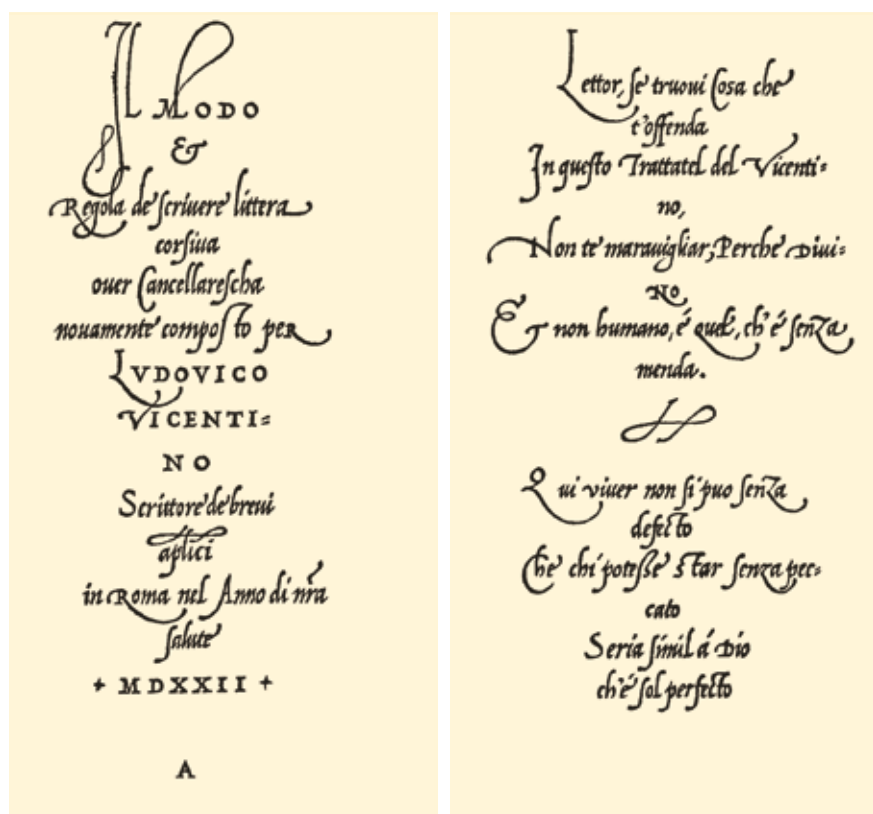 Il Modo
&
Regola de scriuere littera
corsiua
ouer Cancellarescha
nouamente composto per
LVDOVICO
VICENTI=
NO
Scrittore de breui
aplici
in Roma nel Anno di nr̃a
salute
+ MDXXII +
A
Lettor, se truoui Cosa che
t'offenda
In questo Trattatel del Vicenti=
no,
Non te marauigliar; Perche Diui=
No
Et non humano, é quel, ch'é senza
menda.
Qui viuer non si puo senza
defecto
Che chi potesse star senza pec=
cato
Seria simil á Dio
ch'é sol perfecto